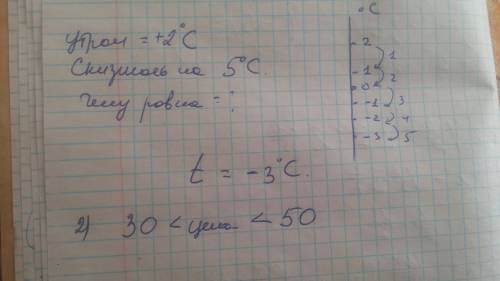 °C
утром = +2°C
Снизилась на 5°C.
Чему равна = ?
2
1
1
2
0
-1
3
-2
4
-3
5
t = -3°C.
2) 30 < цена < 50